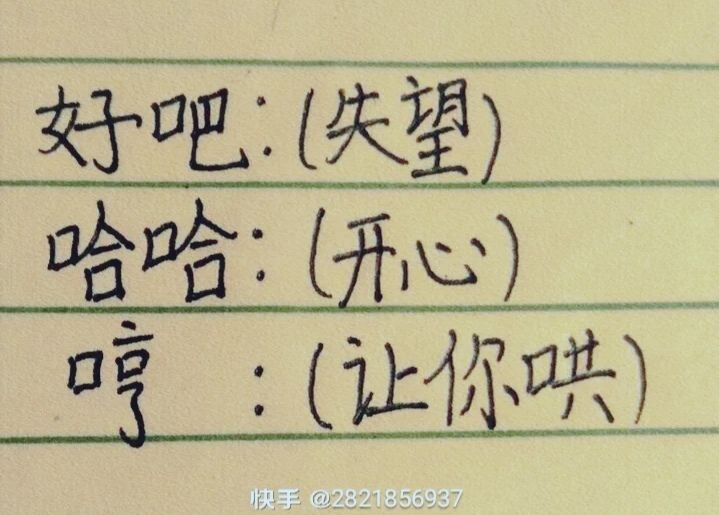 好吧:(失望)
哈哈:(开心)
哼 :(让你哄)
快手 @2821856937